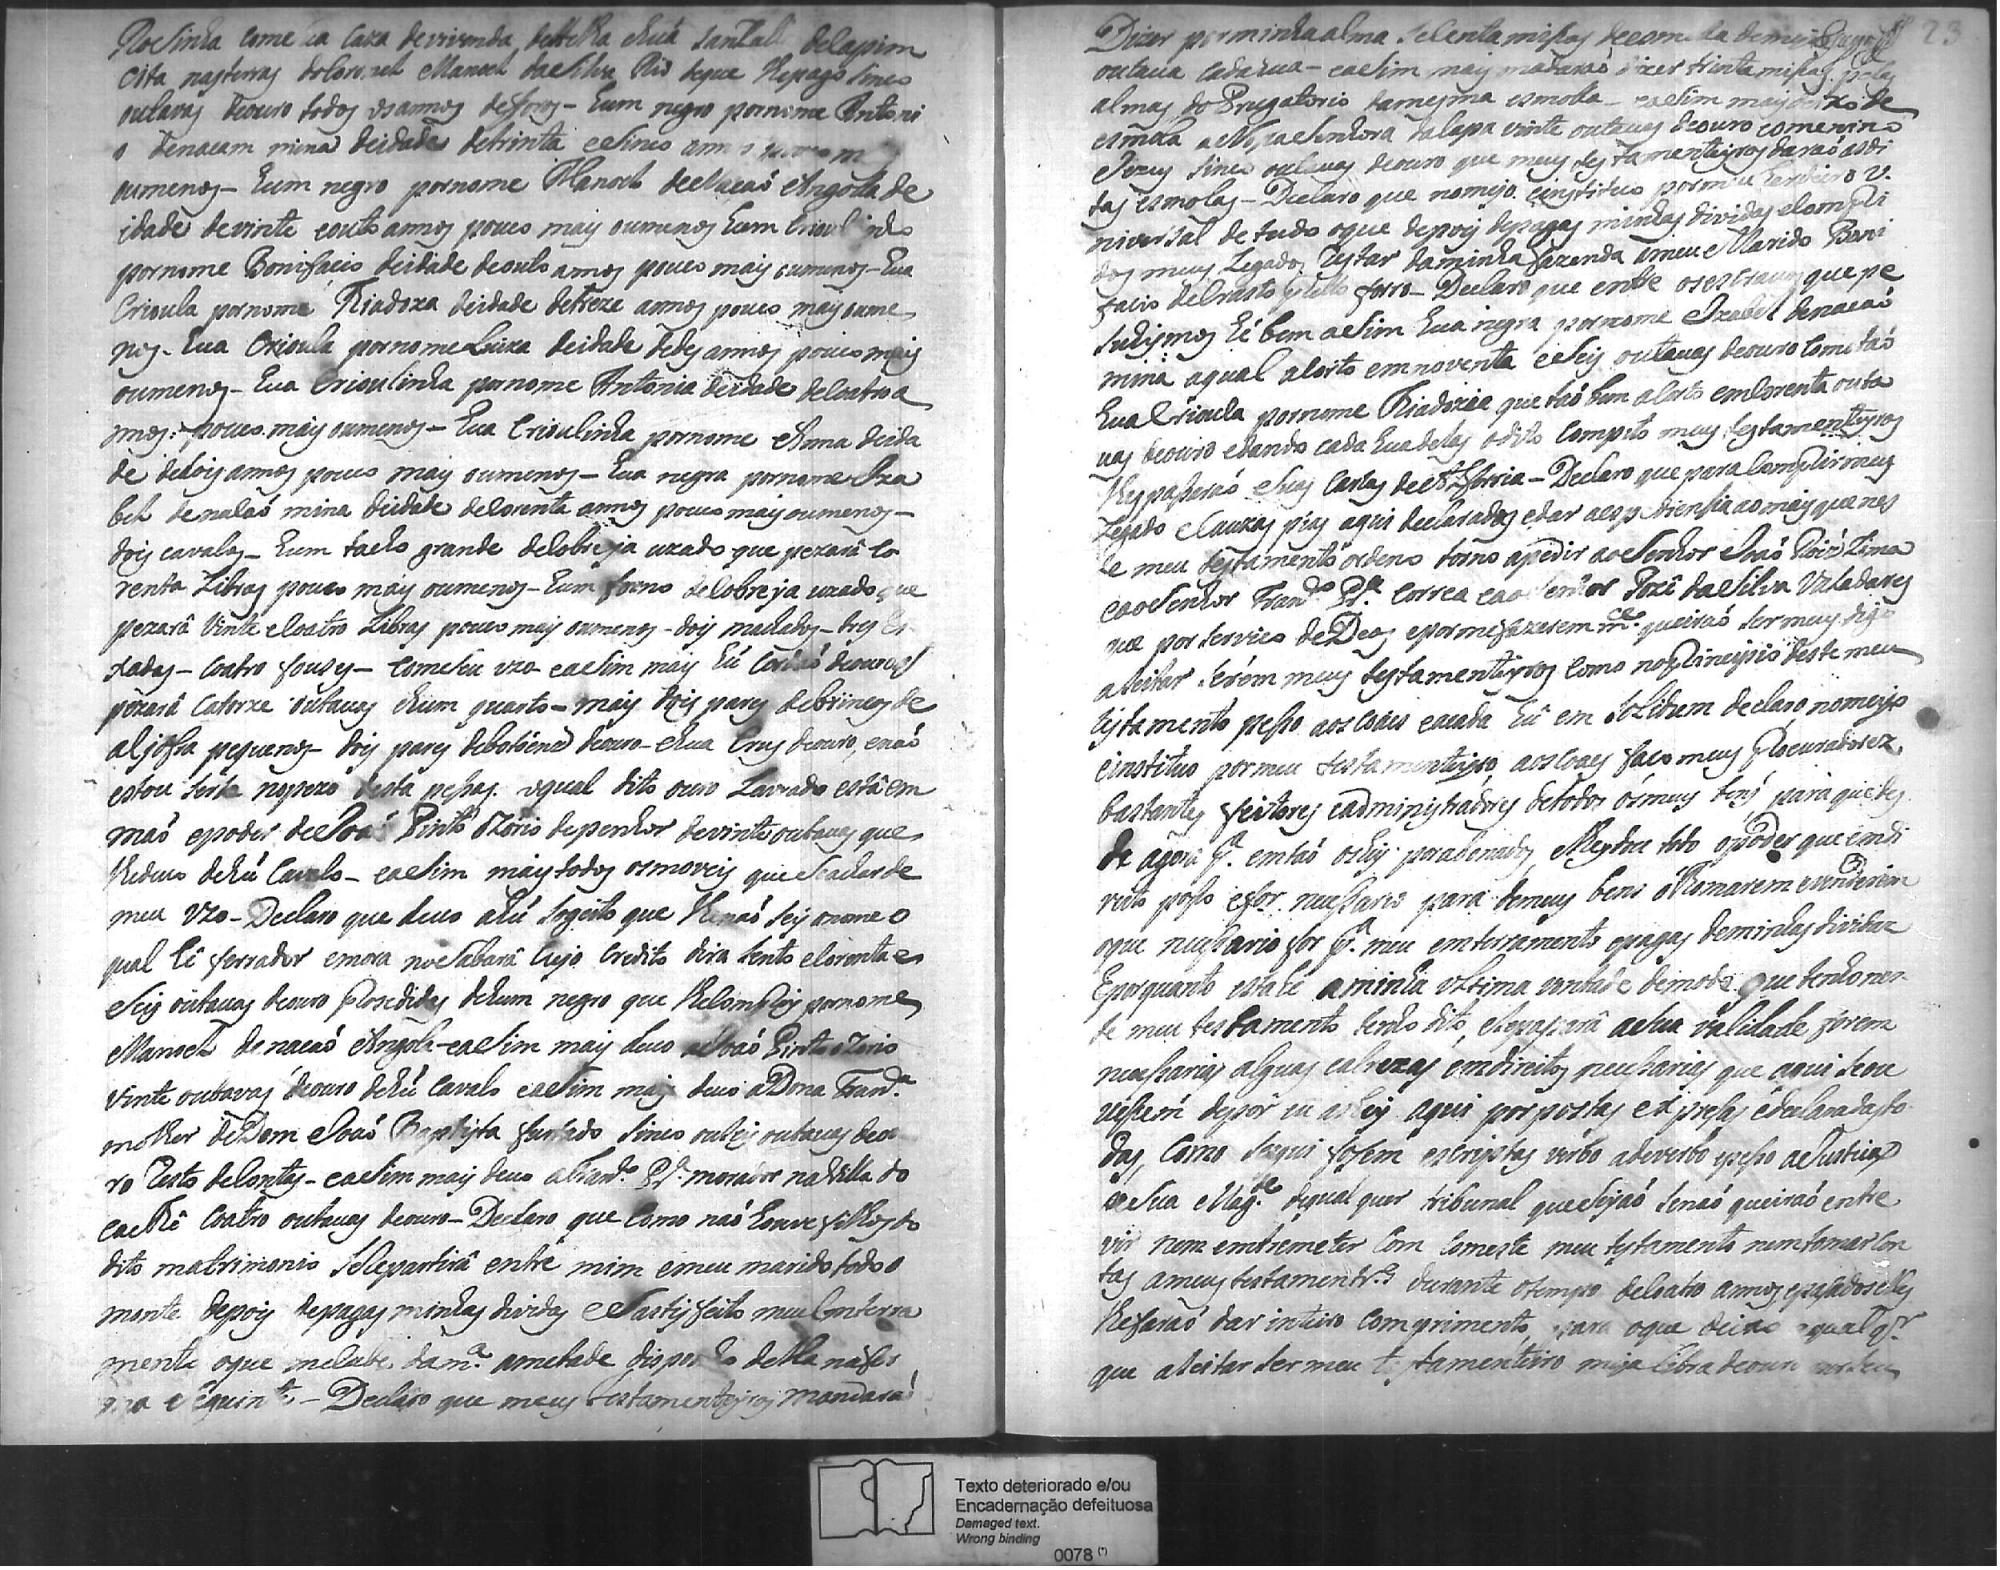 Rosinha com sua caza devivenda detelha e hua santall delapim
cita nasterras docoronel Manoel daSilva Rio deque Hepago sinco
outavas deouro todos osannos deforos - hum negro pornome Antoni
o denacam mina deidade detrinta esinco annos
oumenos - hum negro pornome Manoel denacaó Angolla de
idade devinte eouto annos pouco mais oumenos hum
pornome Bonifacio deidade deouto annos pouco mais oumenos - hua
Crioula pornome Thiadoza deidade detreze annos pouco mais oume
nos - hua Crioula pornome Luiza deidade dedes annos pouco mais
oumenos - hua Crioulinha pornome Antonia deidade decoatro a
nnos pouco mais oumenos - hua Crioulinha pornome Anna deida
de dedois annos pouco mais oumenos - hua negra pornome Iza
bel denacaó mina deidade decorenta annos pouco mais oumenos -
dois cavalos - hum tacho grande decobre ja uzado que pezará co
renta Libras pouco mais oumenos - hum forno decobre ja uzado que
pezará vinte ecoatro Libras pouco mais oumenos - dois machados - tres En
xadas - coatro fouses - comseu uzo eaSim mais hú Cordaó deouro q
pezará Catorze outavas ehum quarto - mais dois pares debrincos de
aljofra pequenos - dois pares debotóens deouro - ehua Crus deouro, enaó
estou serta nopezo desta pessas. oqual dito ouro Lavrado está em
maó epoder deJoaó Pinto Ozorio depenhor devinte outavas que
Hedevo dehú Cavalo - eaSim mais todos osmoveis que seachar de
meu uzo - Declaro que devo ahú sogeito que Henaó sei onome o
qual hé ferrador emora noSabará Cujo Credito dira sento ecorenta e
seis outavas deouro Prosedidas dehum negro que Hecomprei pornome
Manoel denacaó Angola - eaSim mais devo aJoaó Pinto Ozorio
vinte outavas deouro dehú Cavalo eaSim mais devo aDona Fran.ca
molher deDom Joaó Baptista furtado sinco outavas deou
ro Resto deContas - eaSim mais devo aFran.co Pr.a morador naVilla do
Caethé Coatro outavas deouro - Declaro que Como naó houve filhos do
dito matrimonio seRepartirá entre mim emeu marido todo o
monte depois depagas minhas dividas esastisfeito meu Conterra
mento oque mecabe dam.a ametade disponho della nafor
ma seguinte - Declaro que meus testamenteiros mandaraó
23
Dizer porminha alma secenta missas deesmolla demeya
outava cadahua - eaSim mais mandaraó dizer trinta missas pelas
almas do Prugatorio damesma esmolla - eaSim mais deixo de
esmola aNossaSenhora dalapa vinte outavas deouro eomenino
Jezus sinco outavas deouro que meus testamenteiros daraó asdi
tas esmolas - Declaro que nomeyo einstituo pormeu herdeiro u.
niversal detudo oque depois depagas minhas dividas ecompri
dos meus Legados Restar daminha fazenda ameu Marido Boni
facio deCrasto preto forro - Declaro que entre osescravos que pe
suhimos hé bem aSim hua negra pornome Izabel denacaó
mina aqual aCorto emnoventa eSeis outavas deouro Comotaó
hua Crioula pornome Thiadozia que taó bem aCorto emcorenta outa
vas deouro edando cada hua delas odito Computo meus testamenteiros
Hes passaraó suas Cartas deAlforria - Declaro que para Comprirmeus
Legado eCauzas pias aqui declaradas edar aespediensia aomais quenes
te meu testamento ordeno torno apedir aoSenhor Joaó Roiz Lima
eaoSenhor Fran.co Pr.a Correa eaoSenhor Jozé daSilva Valadares
que porservico deDeos epormefazerem m.ce queiraó ser
aseitar serem meus testamenteiros Como noPrincipio deste meu
testamento pesso aoscoais eacada hú em Solidum declaro nomeyo
einstituo pormeu testamenteiro aoscoaes faco meus Procuradorez
bastantes feitores eadministradores detodos ósmeus bens para quedes
de agora p.a entaó oshey poradonados eHesdou todo opoder que emdi
reito posso efor nesessario para demeus bens óthomarem evenderem
oque nesessario for p.a meu emterramento epagas deminhas dividaz
Eporquanto esta hé aminha ultima vontade domodo que tenho nes
te meu testamento tenho dito, esepara asua validade forem
nesessarias alguas clauzas emdireitos nesessarias que aqui seou
vesem depór eu as hey aqui porpostas eexpresas edeclaradasto
das, Como seaqui fosem escriptas verbo adeverbo epesso aJustica
deSua Mag.de dequal quer tribunal queseijaó senaó queiraó entre
vir nem emtremeter Com Comeste meu testamento nemtomarCon
tas ameus testamentr.os durante otempo decoatro annos epasados elles
Hefaraó dar inteiro Comprimento, para oque deixo aqual q.r
que aseitar ser meu testamenteiro meya Libra deouro

Texto deteriorado e/ou
Encadernação defeituosa
Damaged text.
Wrong binding
0078 (*)